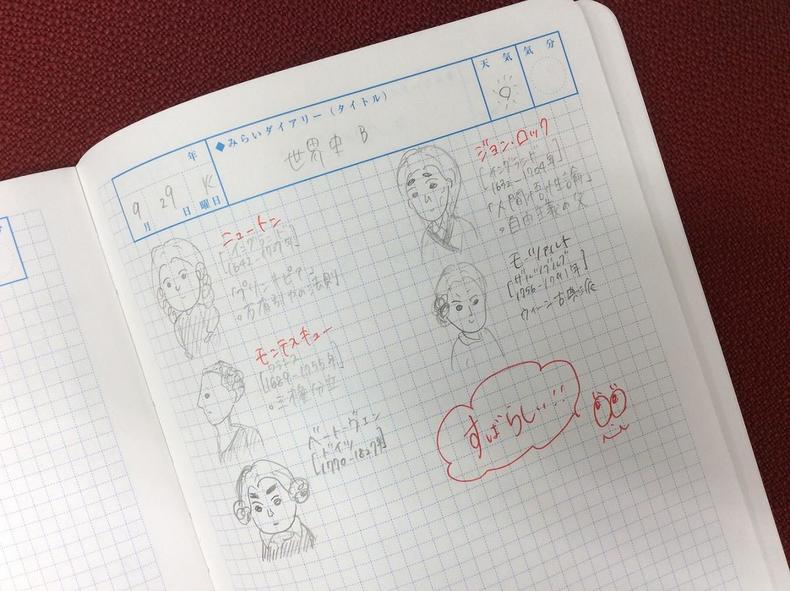 ◆みらいダイアリー(タイトル)
天気 気分
年
9月29日 K曜日
世界史 B
ニュートン
[イングランド
1642-1727年]
「プリンキピア」
。万有引力の法則
モンテスキュー
[フランス
1689-1755年]
。三権分立
ベートーヴェン
[ドイツ
1770-1827年]
ジョン・ロック
[イングランド
・1632-1704年]
「人間悟性論」
。自由主義の父
モーツァルト
1756-1791年]
ウィーン古典派
すばらしい!!